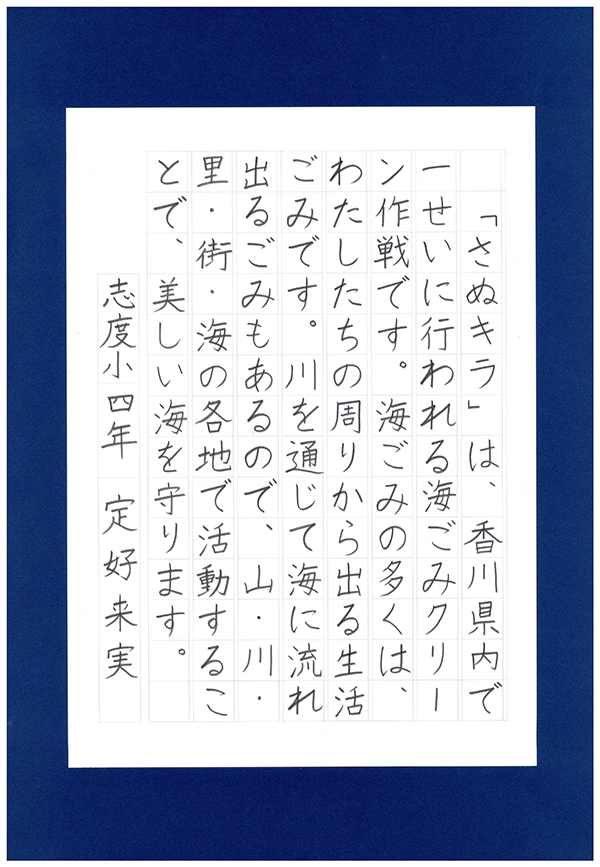 「さぬキラ」は、香川県内で
一せいに行われる海ごみクリー
ン作戦です。海ごみの多くは、
わたしたちの周りから出る生活
ごみです。川を通じて海に流れ
出るごみもあるので、山・川・
里・街・海の各地で活動するこ
とで、美しい海を守ります。
志度小四年 定好来実